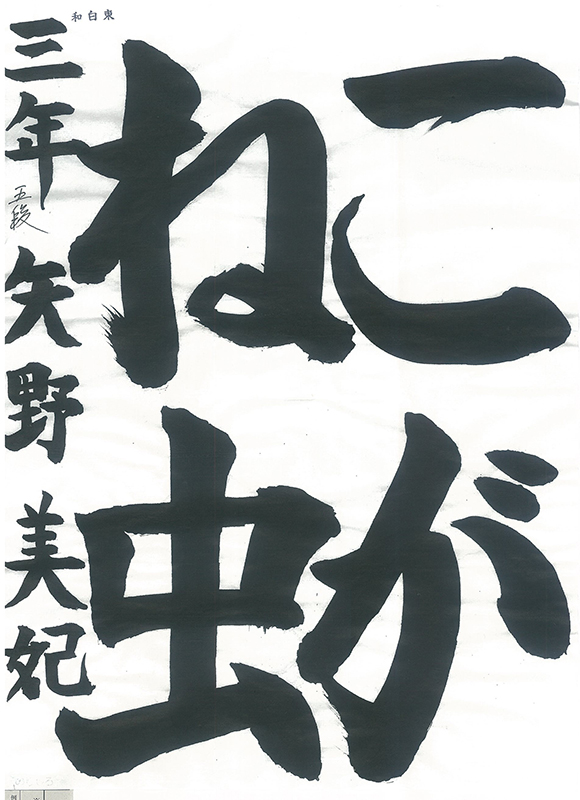 こが
ね虫
三年 五段 矢野 美妃
東白和